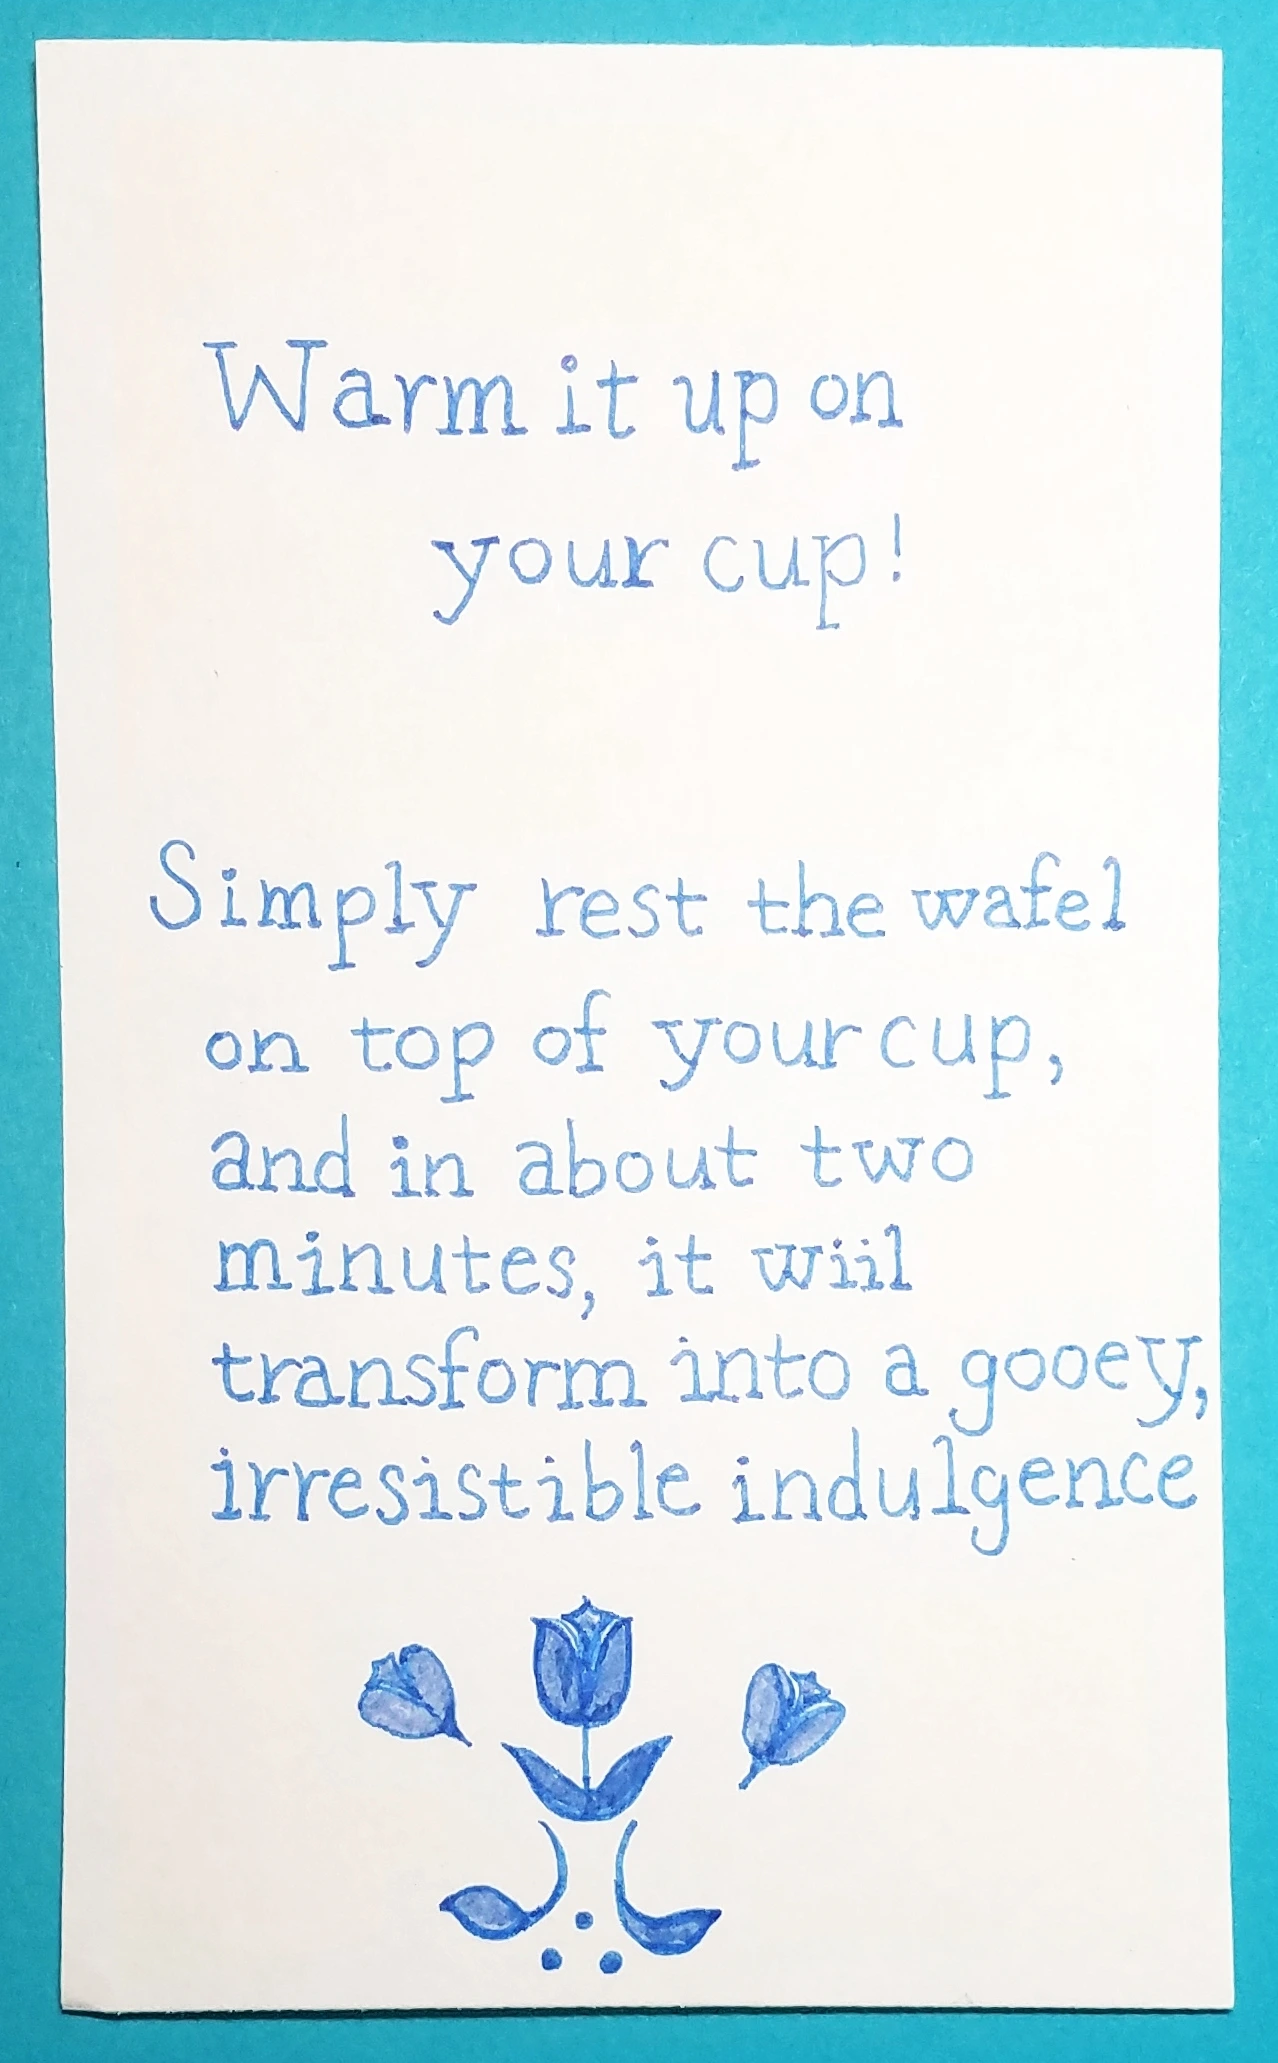 Warm it up on
your cup!
Simply rest the wafel
on top of your cup,
and in about two
minutes, it wiil
transform into a gooey,
irresistible indulgence